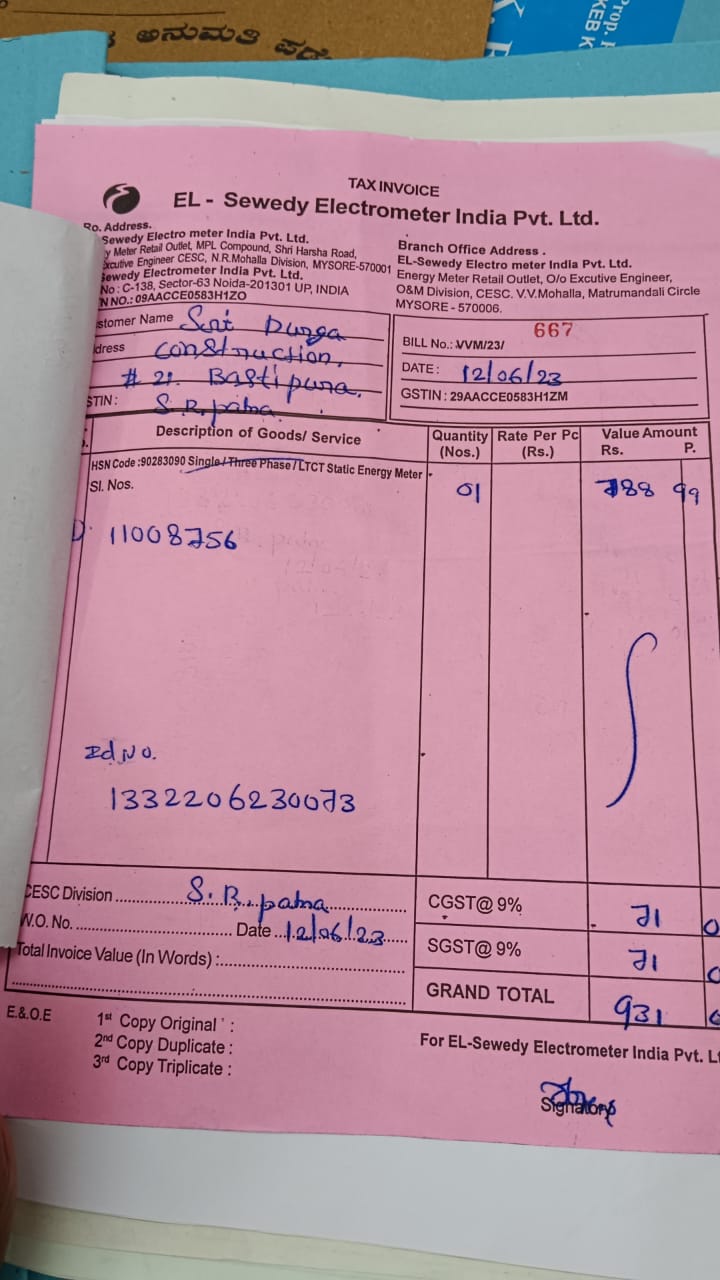 ಅನುಮತಿ
Prop.
KEB K
TAX INVOICE
EL - Sewedy Electrometer India Pvt. Ltd.
Ro. Address.
Sewedy Electro meter India Pvt. Ltd.
y Meter Retail Outlet, MPL Compound, Shri Harsha Road,
xcutive Engineer CESC, N.R.Mohalla Division, MYSORE-570001
Sewedy Electrometer India Pvt. Ltd.
No : C-138, Sector-63 Noida-201301 UP, INDIA
N NO.: 09AACCE0583H1ZO
Branch Office Address .
EL-Sewedy Electro meter India Pvt. Ltd.
Energy Meter Retail Outlet, O/o Excutive Engineer,
O&M Division, CESC. V.V.Mohalla, Matrumandali Circle
MYSORE - 570006.
stomer Name Sri Durga
dress construction,
# 21. Bastipura.
STIN : S.R.patna.
667
BILL No.: VVM/23/
DATE : 12/06/23
GSTIN : 29AACCE0583H1ZM
Description of Goods/ Service Quantity (Nos.) Rate Per Pc (Rs.) Value Amount Rs. P.
HSN Code :90283090 Single / Three Phase / LTCT Static Energy Meter
Sl. Nos. 01 788 99
D. 11008756
Id No.
1332206230073
CESC Division S.R.patna CGST@ 9% 71 0
W.O. No. Date 12/06/23 SGST@ 9% 71 0
Total Invoice Value (In Words) : GRAND TOTAL 931
E.&.O.E
1st Copy Original :
2nd Copy Duplicate :
3rd Copy Triplicate :
For EL-Sewedy Electrometer India Pvt. Lt
Signatory